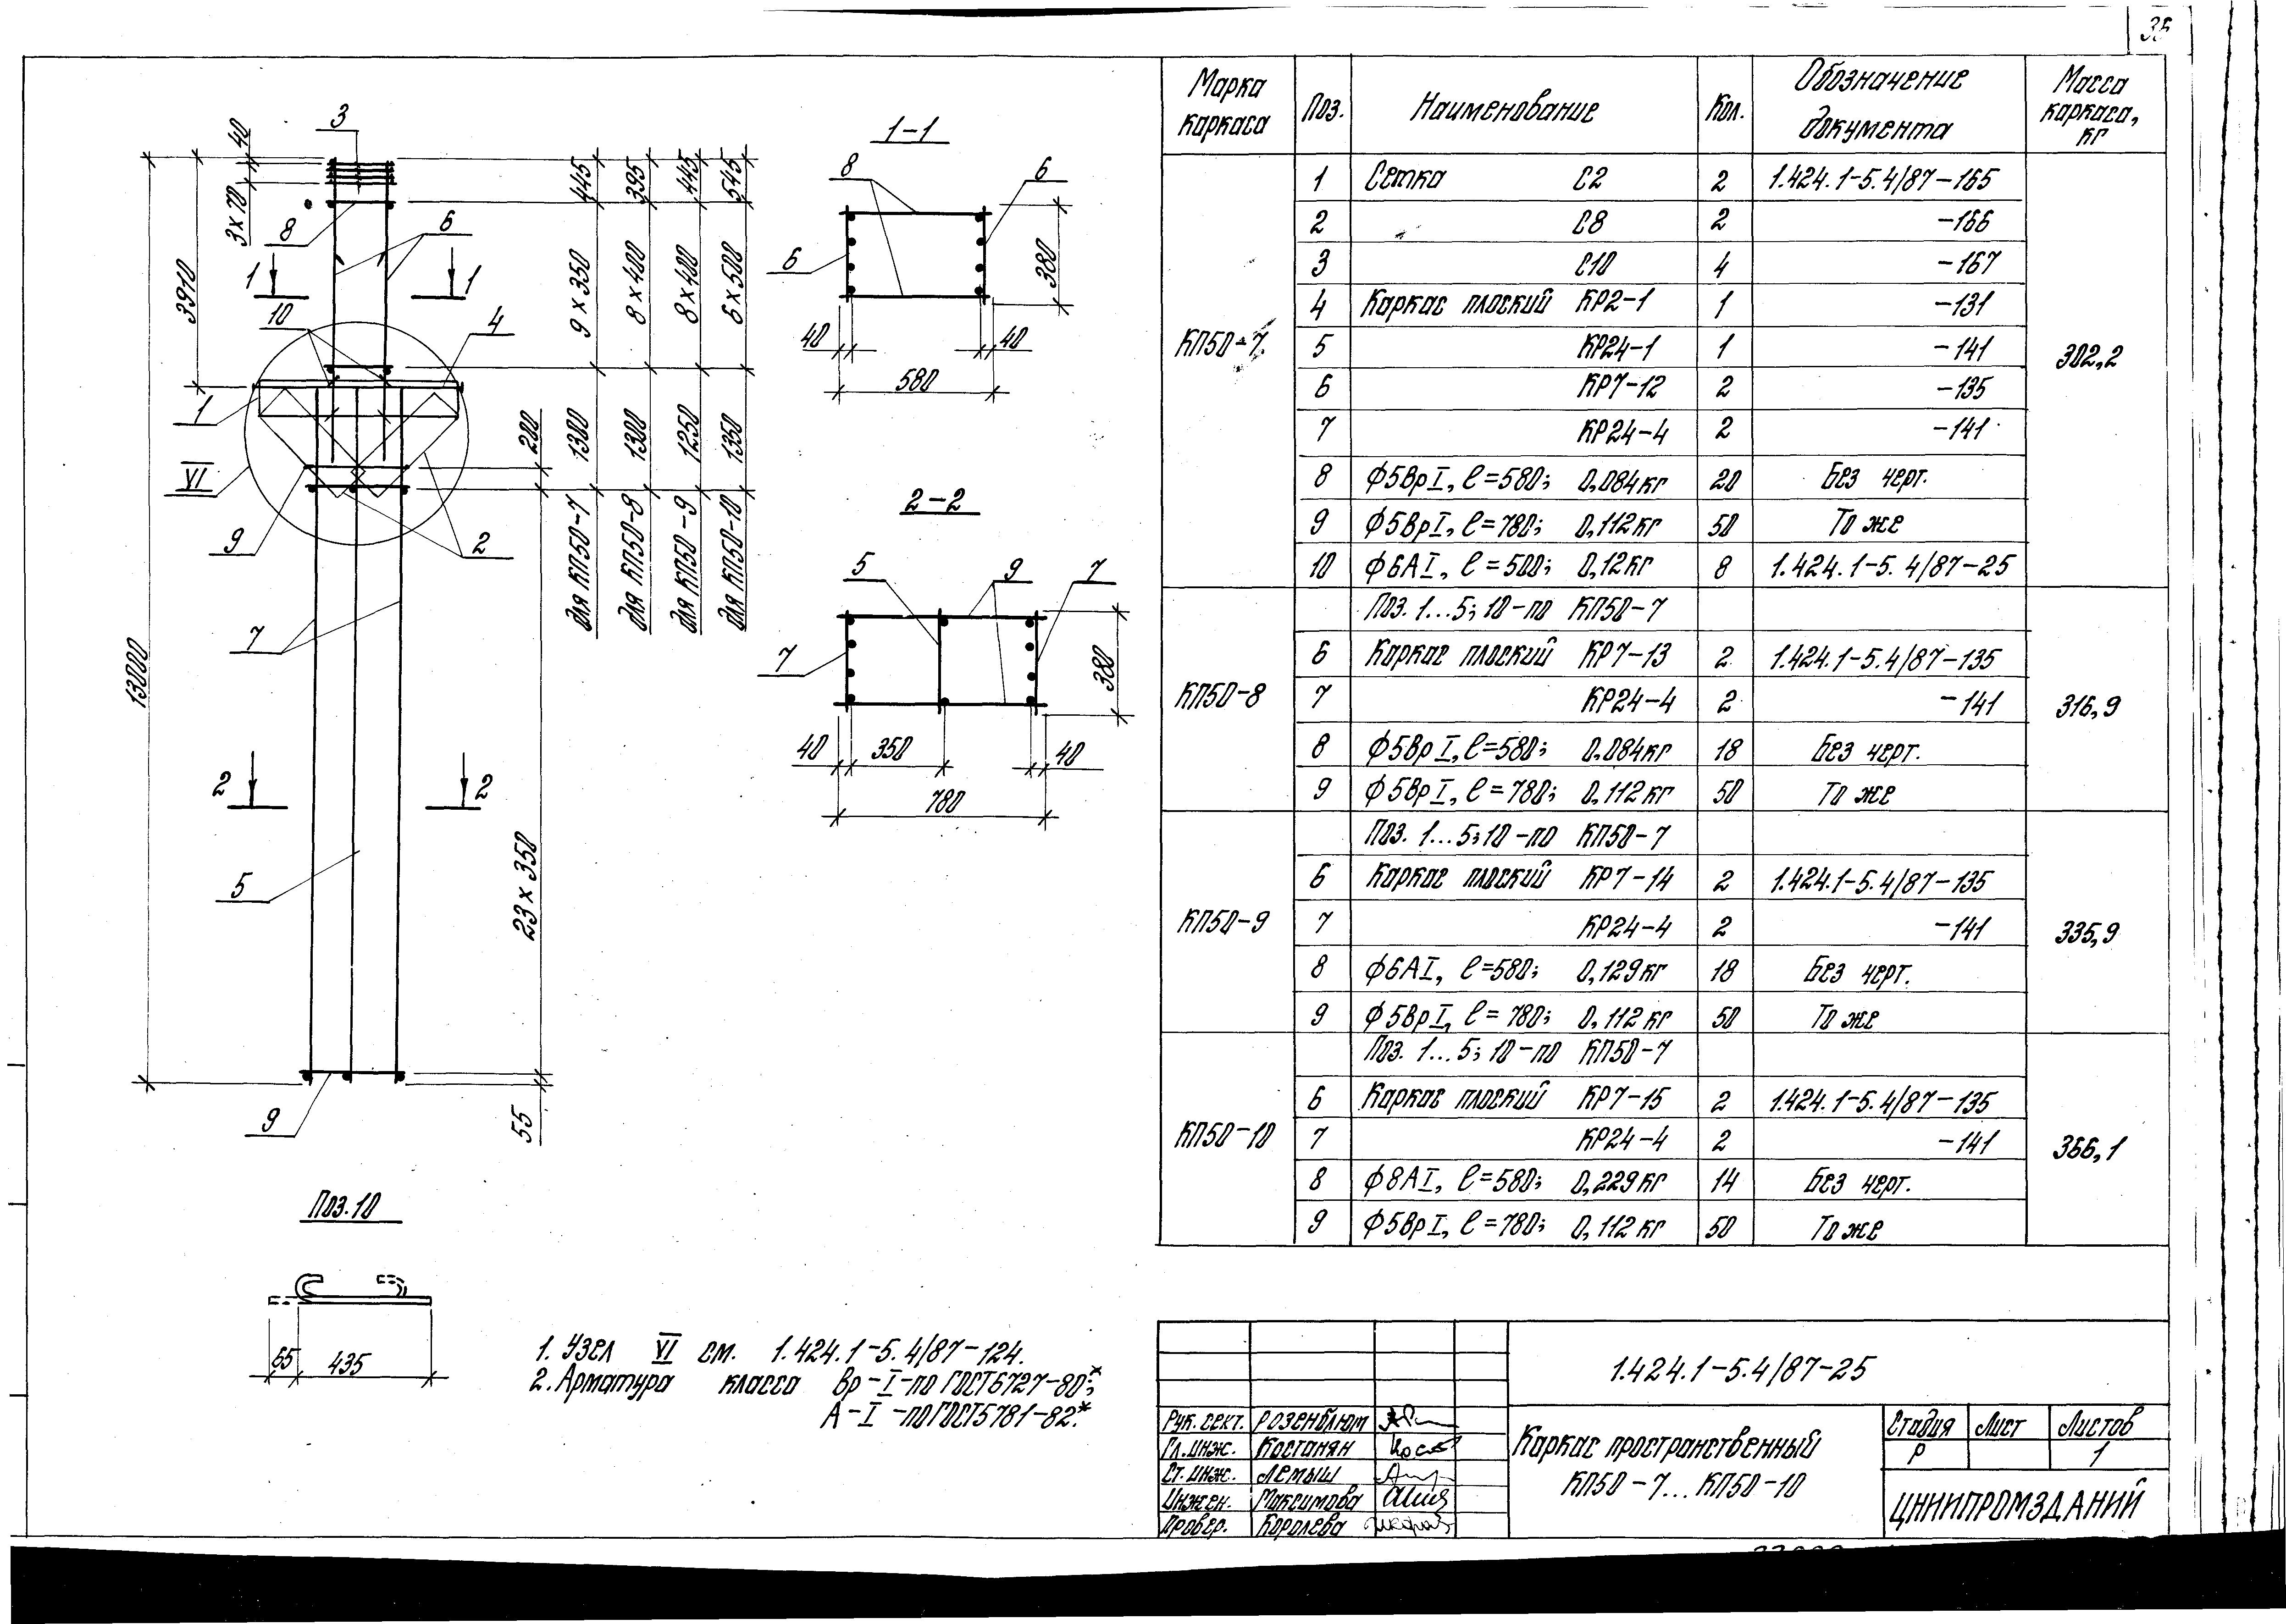 35
3
40
3×70
3910
13000
8
6
1
1
10
4
1
VI
9
2
7
2
2
5
9
445
395
445
545
9×350
8×400
8×400
6×500
200
1300
1300
1250
1350
для КП50-7
для КП50-8
для КП50-9
для КП50-10
23×350
55
1-1
8
6
6
380
40
40
580
2-2
5
9
7
7
380
40
350
40
780
Поз.10
65
435
1. Узел VI см. 1.424.1-5.4/87-124.
2. Арматура класса Вр-I-по ГОСТ6727-80*;
А-I-по ГОСТ5781-82*.
Марка каркаса Поз. Наименование Кол. Обозначение документа Масса каркаса, кг
КП50-7 302,2
1 Сетка С2 2 1.424.1-5.4/87-165
2 С8 2 -166
3 С10 4 -167
4 Каркас плоский КР2-1 1 -131
5 КР24-1 1 -141
6 КР7-12 2 -135
7 КР24-4 2 -141
8 ϕ5ВрI, ℓ=580; 0,084кг 20 Без черт.
9 ϕ5ВрI, ℓ=780; 0,112кг 50 То же
10 ϕ6АI, ℓ=500; 0,12кг 8 1.424.1-5.4/87-25
КП50-8 316,9
Поз. 1...5; 10-по КП50-7
6 Каркас плоский КР7-13 2 1.424.1-5.4/87-135
7 КР24-4 2 -141
8 ϕ5ВрI, ℓ=580; 0,084кг 18 Без черт.
9 ϕ5ВрI, ℓ=780; 0,112кг 50 То же
КП50-9 335,9
Поз. 1...5; 10-по КП50-7
6 Каркас плоский КР7-14 2 1.424.1-5.4/87-135
7 КР24-4 2 -141
8 ϕ6АI, ℓ=580; 0,129кг 18 Без черт.
9 ϕ5ВрI, ℓ=780; 0,112кг 50 То же
КП50-10 366,1
Поз. 1...5; 10-по КП50-7
6 Каркас плоский КР7-15 2 1.424.1-5.4/87-135
7 КР24-4 2 -141
8 ϕ8АI, ℓ=580; 0,229кг 14 Без черт.
9 ϕ5ВрI, ℓ=780; 0,112кг 50 То же
1.424.1-5.4/87-25
Рук. сект. Розенблюм
Гл. инж. Костанян
Ст. инж. Лемыш
Инжен. Максимова
Провер. Королева
Каркас пространственный
КП50-7...КП50-10
Стадия Лист Листов
Р 1
ЦНИИПРОМЗДАНИЙ